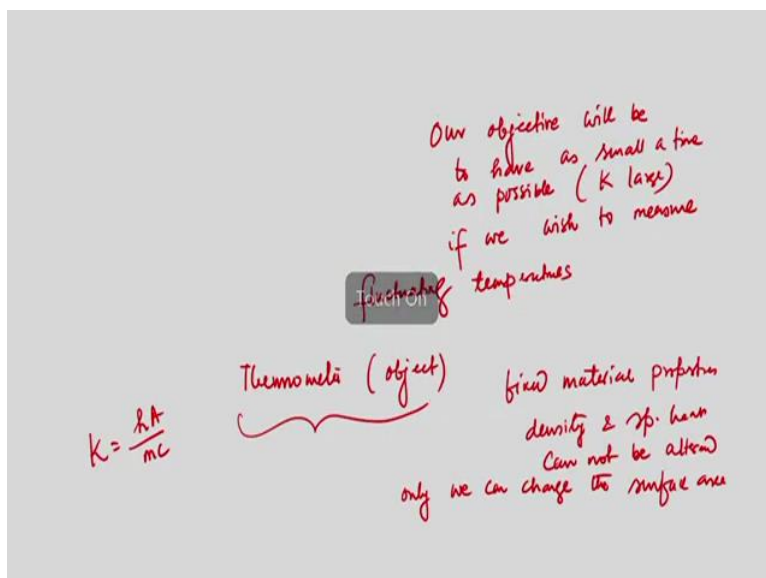 Our objective will be
to have as small a time
as possible (K large)
if we wish to measure
fluctuating temperatures
Touch On
Thermometer (object)
K = hA/mC
fixed material properties
density & sp. heat
can not be altered
only we can change the surface area